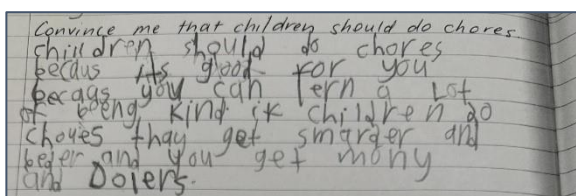 Convince me that children should do chores.
chiildren should do chores
becaus its good for you
becags you can lern a Lot
of boeng kind ik children do
chores thay get smarder and
beder and you get mony
and Dolers.